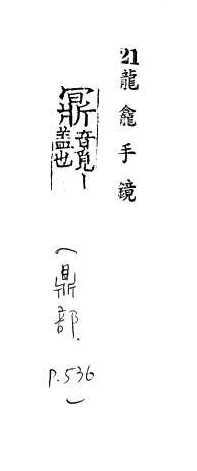 21龍龕手鏡
鼏
音覓丨
盖也
(鼎部.
P.536)